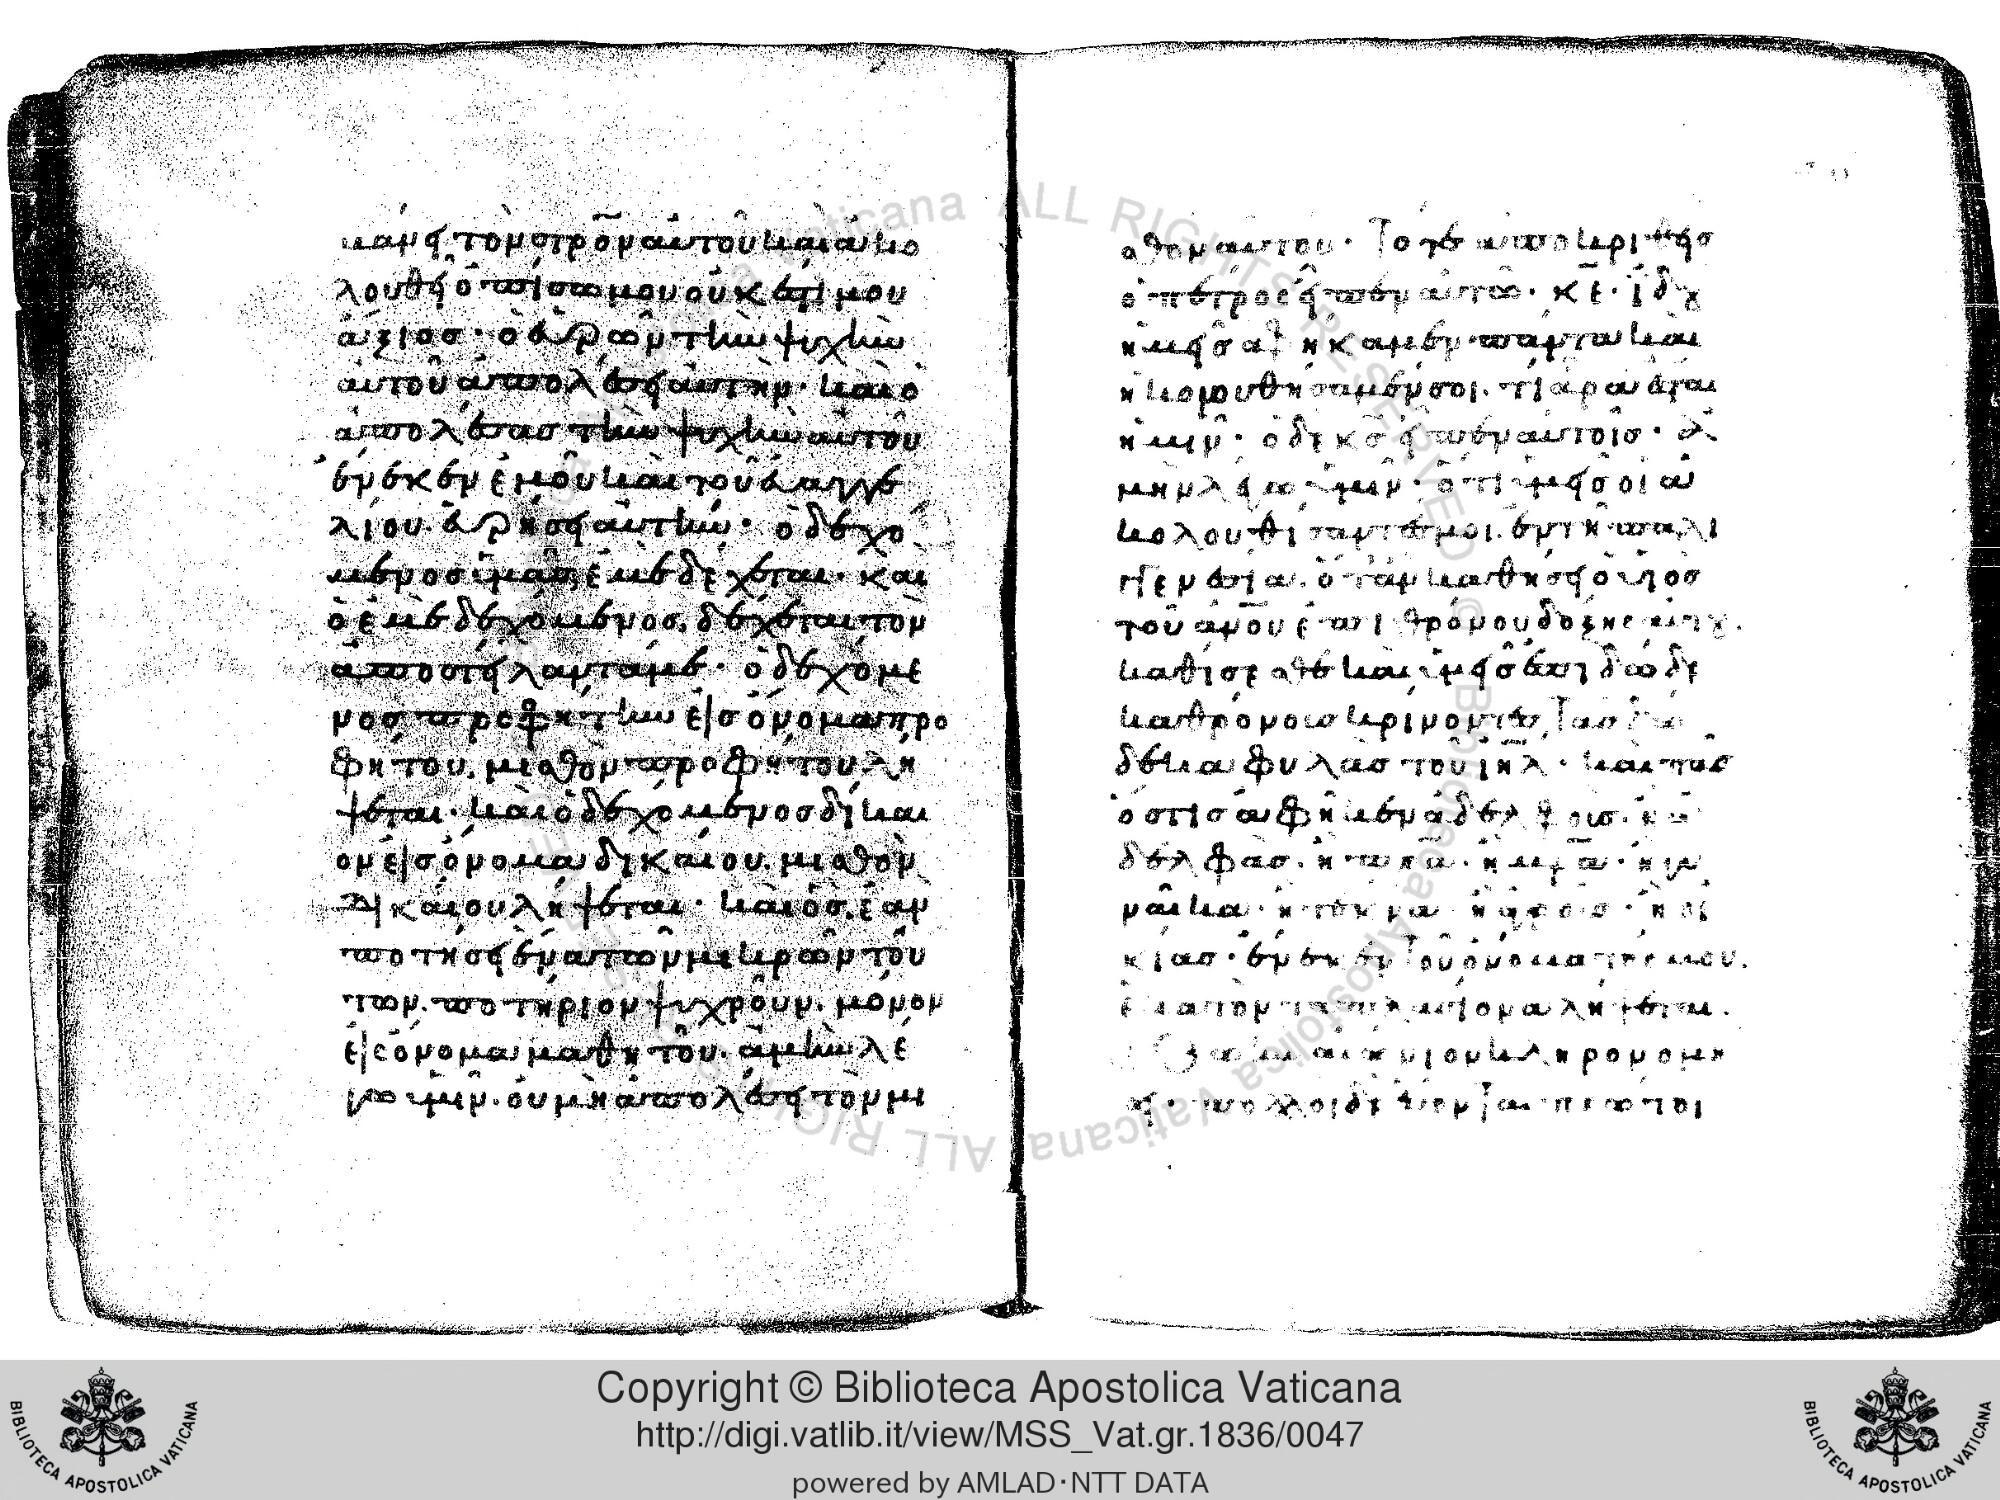 καμει τὸν στ̅ρ̅ον αὐτοῦ καὶ ἀκο
λουθεῖ ὀπίσω μου οὐκ ἔστι μου
ἄξιοσ· ὁ εὑρῶν τὴν ψυχὴν
αὐτοῦ ἀπολέσει αὐτην· καὶ ὁ
ἀπολέσασ τὴν ψυχὴν αὐτοῦ
ἕνεκεν ἐμοῦ καὶ τοῦ εὐαγγε
λίου. εὑρήσει αὐτὴν· ὁ δεχό
μενοσ ὑμᾶσ, ἐμὲ δέχεται· και
ὁ ἐμὲ δεχόμενοσ, δέχεται τὸν
ἀποστείλαντα με· ὁ δεχόμε
νοσ προφήτην εἰσ ὄνομα προ
φήτου, μισθὸν προφήτου λή
ψεται· καὶ ὁ δεχόμενοσ δίκαι
ον εἰσ ὄνομα δικαίου. μισθὸν
δικαίου λήψεται· καὶ ὃσ ἐὰν
ποτήσει ἕνα τῶν μικρῶν τού
των. ποτήριον ψυχροῦν. μόνον
εἰσ ὄνομα μαθητοῦ. ἀμὴν λέ
γω ὑμῖν. οὐ μὴ ἀπολέσει τὸν μι
σθὸν αυτου· Τοτε αποκριθεισ
ὁ πέτροσ εἶπεν αὐτῶ· κ̅ε̅· ἰδου
ημεῖσ ἀφήκαμεν παντα καὶ
ηκολουθησαμέν σοι. τί ἄρα ἔσται
ημῖν· ὁ δε ι̅σ̅ εἶπεν αυτοῖσ· ἀ
μὴν λέγω ὑμῖν· ὅτι ὑμεῖσ οἱ ἀ
κολουθίσαντέσ μοι. ἐν τῆ παλι
γγενεσία. ὅταν καθήσει ὁ υἱὸσ
τοῦ ἀ̅ν̅ο̅υ̅ ἐπι θρόνου δόξησ αὐτου.
καθισεσθε καὶ ὑμεῖσ ἐπὶ δώδε
κα θρόνουσ κρινοντεσ τασ δω
δεκα φυλὰσ τοῦ ἰ̅η̅λ̅· καὶ πασ
ὁστισ ἀφῆκεν ἀδελφουσ· η α
δελφὰσ. ἢ π̅ρ̅α̅· ἢ μ̅ρ̅α̅· ἢ γυ
ναῖκα· ἢ τεκνα ἢ αγρουσ· ἢ οἰ
κίασ· ἕνεκεν τοῦ ὀνόματοσ μου.
ἑκατὸν ταπλασίονα λήψεται.
ζωὴν αἰώνιον κληρονομη
σει· πολλοι δὲ ἔσονται πρωτοι